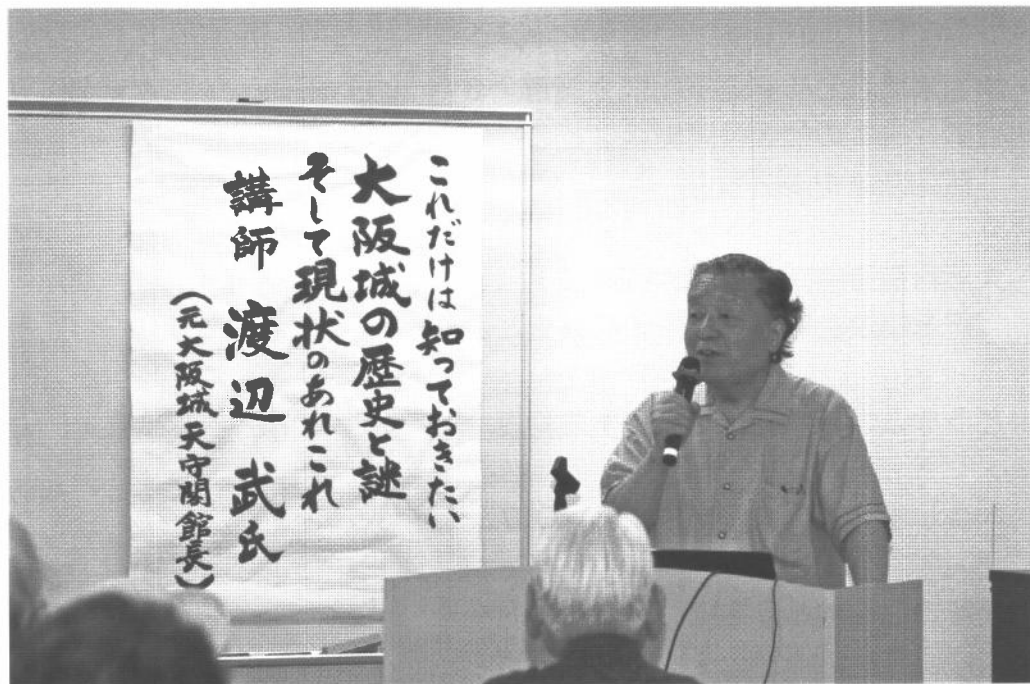 これだけは知っておきたい
大阪城の歴史と謎
そして現状のあれこれ
講師 渡辺 武氏
（元大阪城天守閣館長）